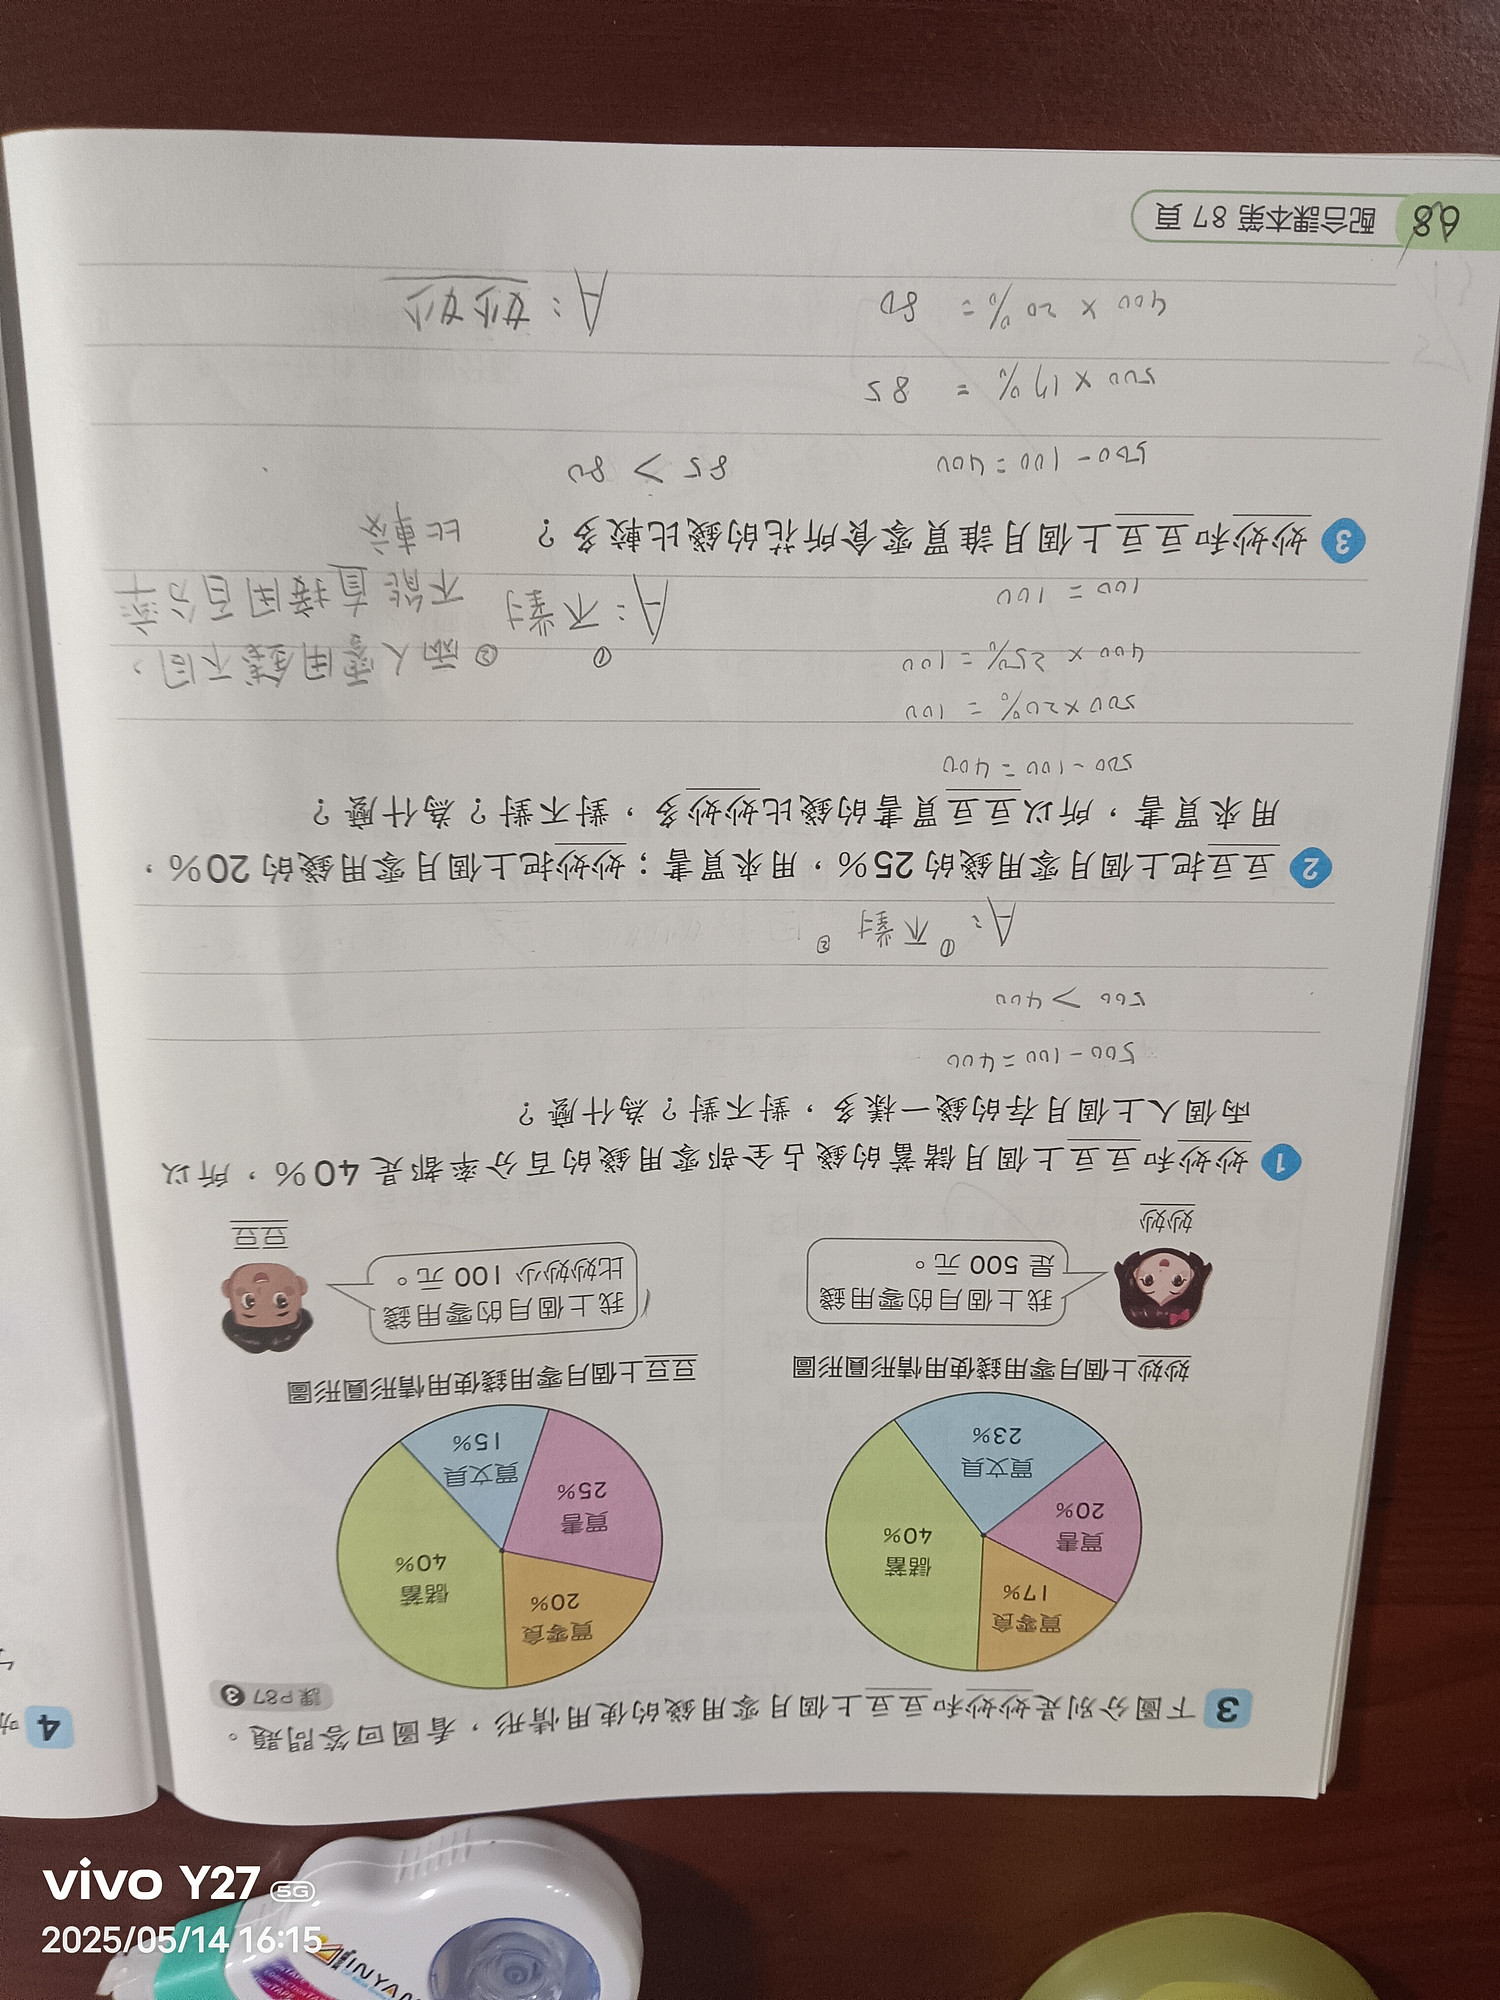 3 下圖分別是妙妙和豆豆上個月零用錢的使用情形，看圖回答問題。
課P87 3
買零食
17%
買書
20%
買文具
23%
儲蓄
40%
妙妙上個月零用錢使用情形圓形圖
我上個月的零用錢
是 500 元。
妙妙
買零食
20%
買書
25%
買文具
15%
儲蓄
40%
豆豆上個月零用錢使用情形圓形圖
我上個月的零用錢
比妙妙少 100 元。
豆豆
1 妙妙和豆豆上個月儲蓄的錢占全部零用錢的百分率都是 40%，所以
兩個人上個月存的錢一樣多，對不對？為什麼？
500-100=400
500 > 400
A：①不對 ②
2 豆豆把上個月零用錢的 25%，用來買書；妙妙把上個月零用錢的 20%，
用來買書，所以豆豆買書的錢比妙妙多，對不對？為什麼？
500-100=400
500×20%=100
400×25%=100
100=100
A：①不對
②兩人零用錢不同，
不能直接用百分率
比較
3 妙妙和豆豆上個月誰買零食所花的錢比較多？
500-100=400 85 > 80
500×17%=85
400×20%=80 A：妙妙
68 配合課本第 87 頁
4
vivo Y27 5G
2025/05/14 16:15